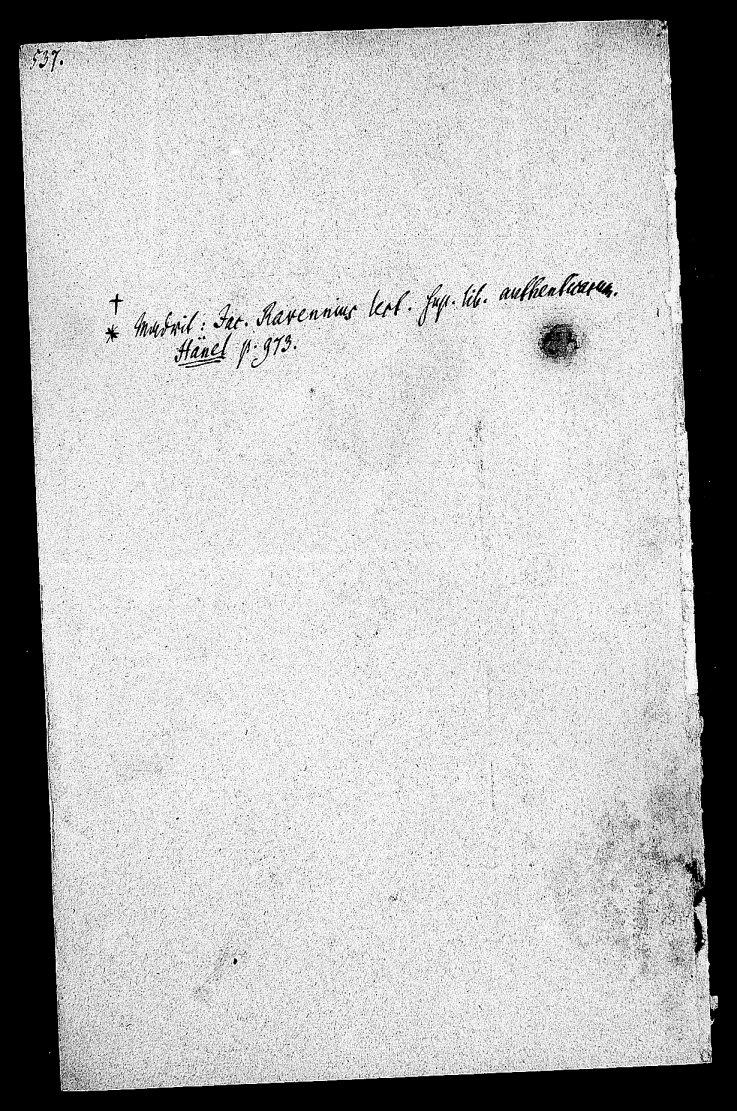 537.
†
* Madrit: Jac. Ravennius lect. sup. lib. authenticarum.
Hänel p. 973.